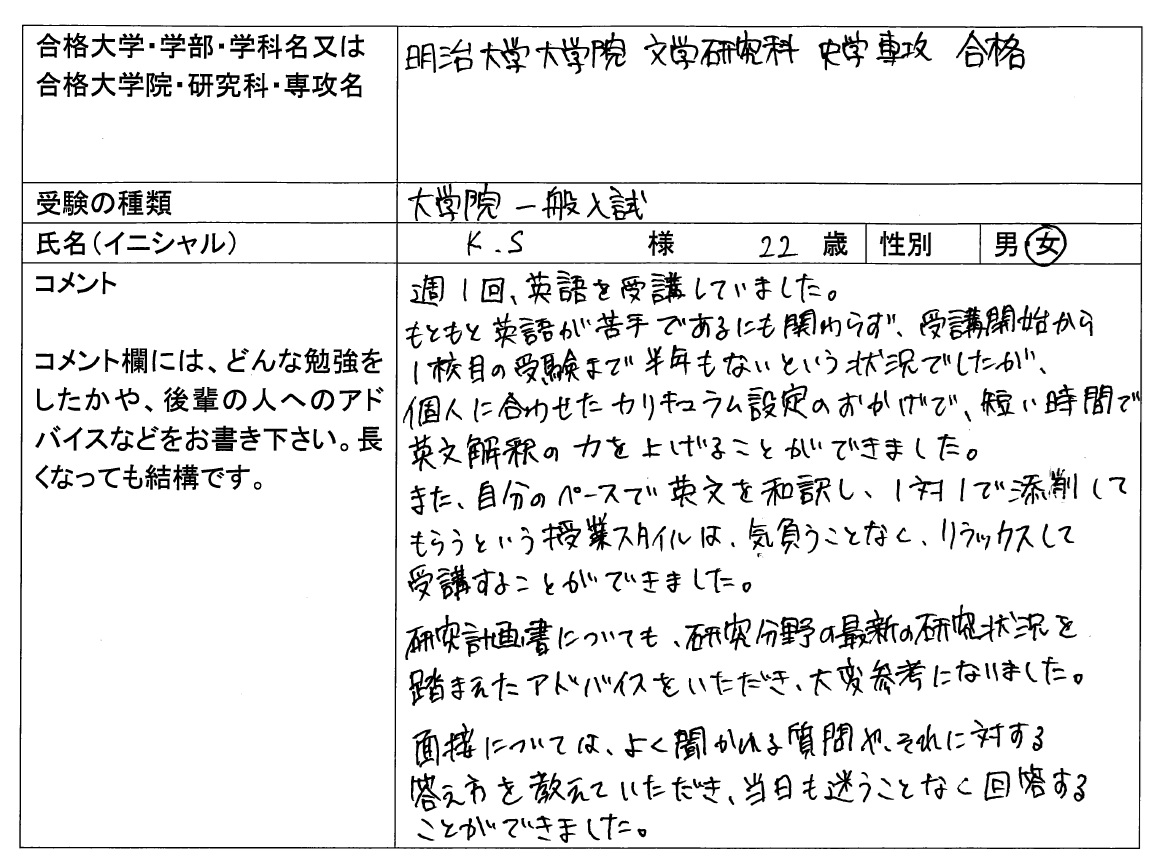 合格大学・学部・学科名又は
合格大学院・研究科・専攻名
明治大学大学院 文学研究科 史学専攻 合格
受験の種類
大学院 一般入試
氏名(イニシャル)
K.S 様 22 歳 性別 男・女
コメント
コメント欄には、どんな勉強を
したかや、後輩の人へのアド
バイスなどをお書き下さい。長
くなっても結構です。
週1回、英語を受講していました。
もともと英語が苦手であるにも関わらず、受講開始から
1校目の受験まで半年もないという状況でしたが、
個人に合わせたカリキュラム設定のおかげで、短い時間で
英文解釈の力を上げることができました。
また、自分のペースで英文を和訳し、1対1で添削して
もらうという授業スタイルは、気負うことなく、リラックスして
受講することができました。
研究計画書についても、研究分野の最新の研究状況を
踏まえたアドバイスをいただき、大変参考になりました。
面接については、よく聞かれる質問や、それに対する
答え方を教えていただき、当日も迷うことなく回答する
ことができました。